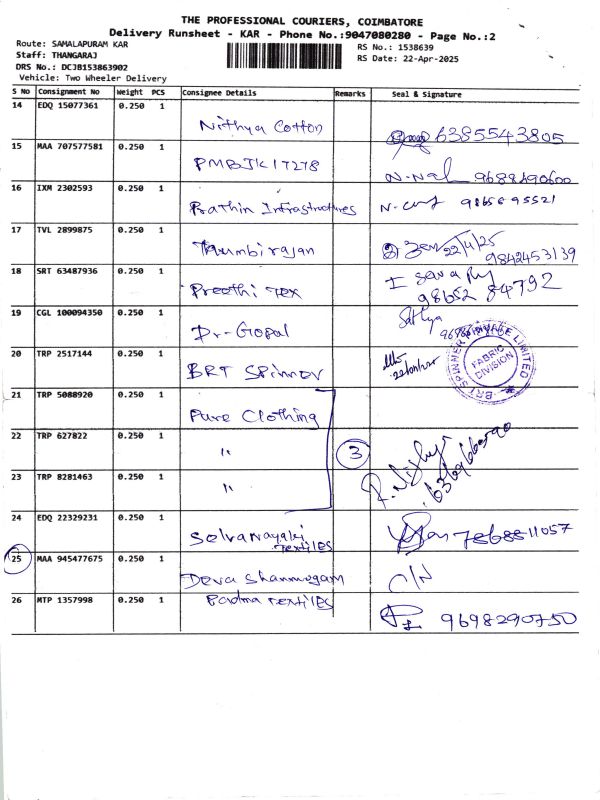 THE PROFESSIONAL COURIERS, COIMBATORE
Delivery Runsheet - KAR - Phone No.:9047080280 - Page No.:2
Route: SAMALAPURAM KAR
Staff: THANGARAJ
DRS No.: DCJB153863902
Vehicle: Two Wheeler Delivery
RS No.: 1538639
RS Date: 22-Apr-2025
S No Consignment No Weight PCS Consignee Details Remarks Seal & Signature
14 EDQ 15077361 0.250 1 Nithya Cotton 6385543805
15 MAA 707577581 0.250 1 PMBJK17278 N-Nal
16 IXM 2302593 0.250 1 Rathin Infrastructures
17 TVL 2899875 0.250 1 Thumbirajan 22/4/25 9842453139
18 SRT 63487936 0.250 1 Preethi Tex 98652 84792
19 CGL 100094350 0.250 1 Dr-Gopal Sathya
20 TRP 2517144 0.250 1 BRT Spinner
BRT SPINNER PRIVATE LIMITED
FABRIC DIVISION
21 TRP 5088920 0.250 1 Pure Clothing
22 TRP 627822 0.250 1 " 3
23 TRP 8281463 0.250 1 "
24 EDQ 22329231 0.250 1 Selvanayaki Textiles
25 MAA 945477675 0.250 1 Deva Shanmugam C/N
26 MTP 1357998 0.250 1 Padma Textiles 9698290750